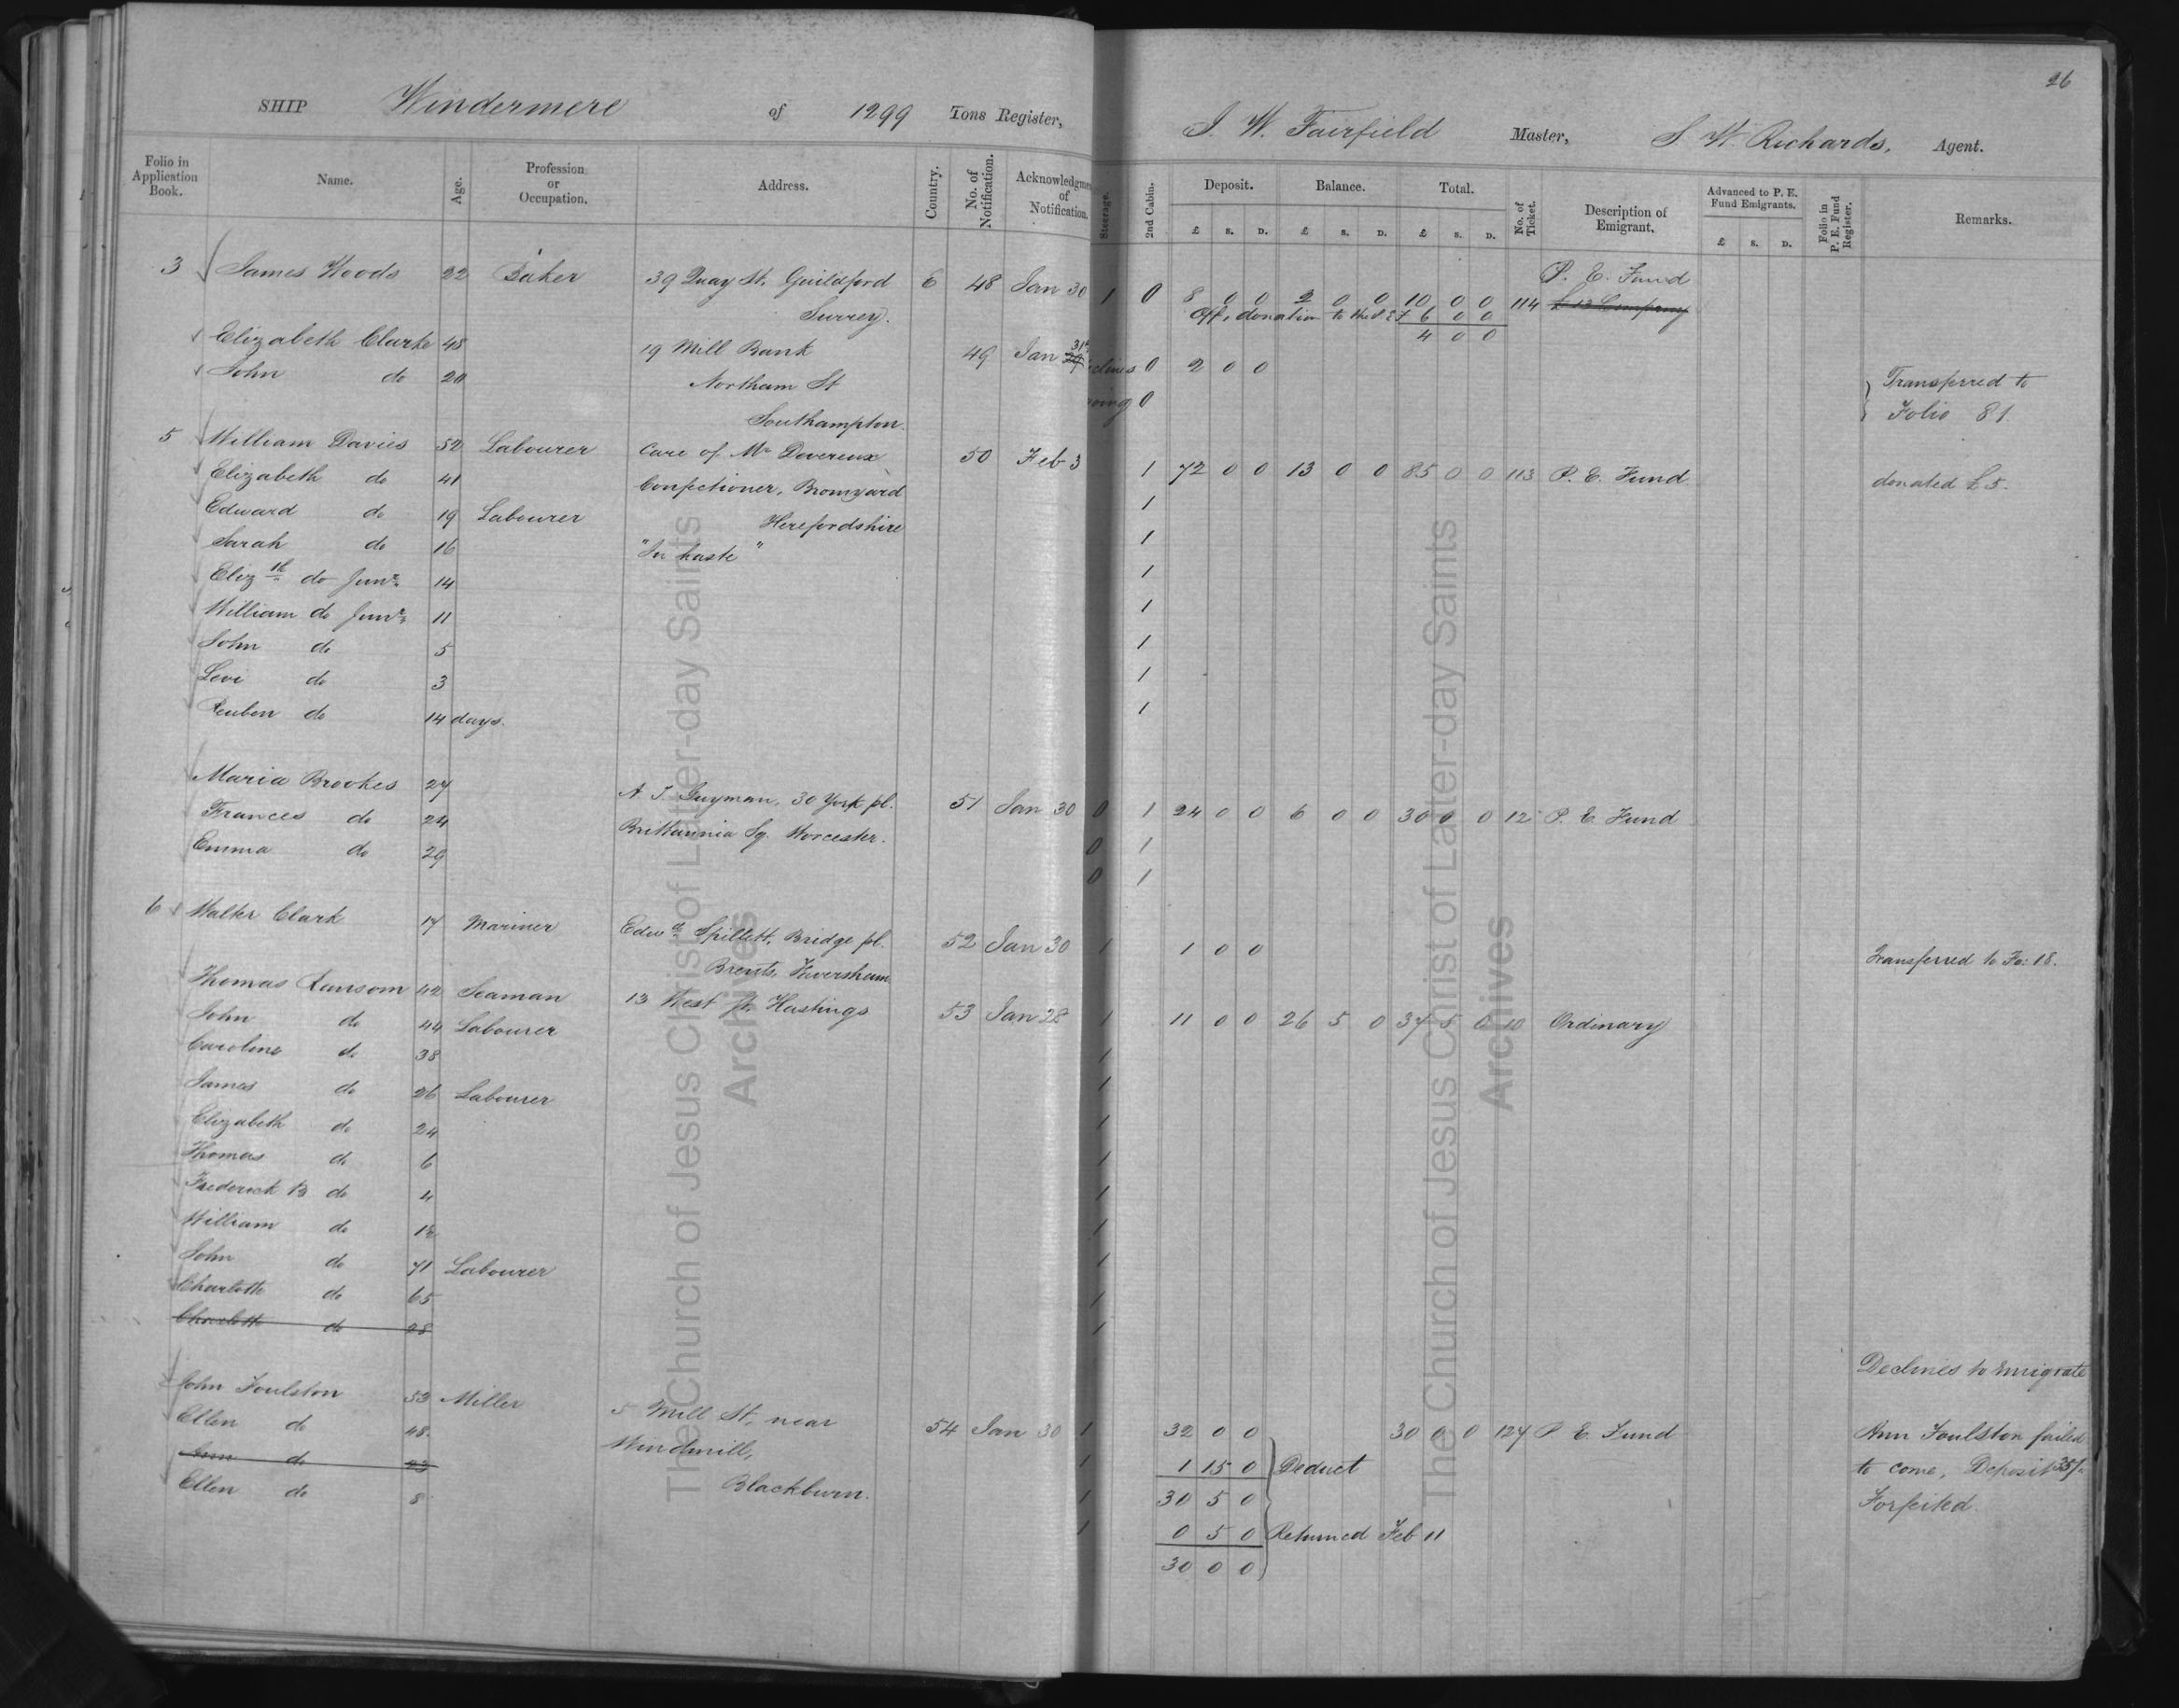 26
SHIP Windermere of 1299 Tons Register, J. W. Fairfield Master, S. W. Richards, Agent.
Folio in Application Book. Name. Age. Profession or Occupation. Address. Country. No. of Notification. Acknowledgment of Notification. Steerage. 2nd Cabin. Deposit. £ s. D. Balance. £ s. D. Total. £ s. D. No. of Ticket. Description of Emigrant. Advanced to P. E. Fund Emigrants. £ s. D. Folio in P. E. Fund Register. Remarks.
P. E. Fund
3 James Woods 22 Baker 39 Quay St. Guildford 6 48 Jan 30 1 0 8 0 0 2 0 0 10 0 0 114 £13 Company
Surrey. Off, donation to the P. E. F 6 0 0
4 0 0
Elizabeth Clarke 48 19 Mill Bank 49 Jan 29 31st declines 0 2 0 0
John do 20 Northam St going 0 Transferred to
Southampton. Folio 81
5 William Davies 52 Labourer Care of Mr Devereux 50 Feb 3 1 72 0 0 13 0 0 85 0 0 113 P. E. Fund donated £5.
Elizabeth do 41 Confectioner, Bromyard 1
Edward do 19 Labourer Herefordshire 1
Sarah do 16 "In haste" 1
Elizth do Junr. 14 1
William do Junr. 11 1
John do 5 1
Levi do 3 1
Reuben do 14 days.
Maria Brookes 27 A J Guyman, 30 York pl. 51 Jan 30 0 1 24 0 0 6 0 0 30 0 0 12 P. E. Fund
Frances do 24 Brittannia Sq. Worcester. 0 1
Emma do 29 0 1
6 Walter Clark 17 Mariner Edwd. Spillett, Bridge pl. 52 Jan 30 1 1 0 0 Transferred to Fo: 18.
Brents, Feversham
Thomas Ransom 42 Seaman 13 West St. Hastings 53 Jan 28 1 11 0 0 26 5 0 37 5 0 10 Ordinary
John do 44 Labourer
Caroline do 38 1
James do 26 Labourer 1
Elizabeth do 24 1
Thomas do 6 1
Frederick B do 4 1
William do 1
John do 71 Labourer 1
Charlotte do 65 1
Charlotte do 28 1
Declines to emigrate
John Foulston 53 Miller 5 Mill St. near 54 Jan 30 1 32 0 0 30 0 0 127 P. E. Fund Ann Foulston failed
Ellen do 48. Windmill, 1 1 15 0 Deduct to come, Deposit 35/-
Ann do 23 Blackburn. 1 30 5 0 Forfeited.
Ellen do 8 1 0 5 0 Returned Feb 11
30 0 0
The Church of Jesus Christ of Latter-day Saints
Archives
The Church of Jesus Christ of Latter-day Saints
Archives